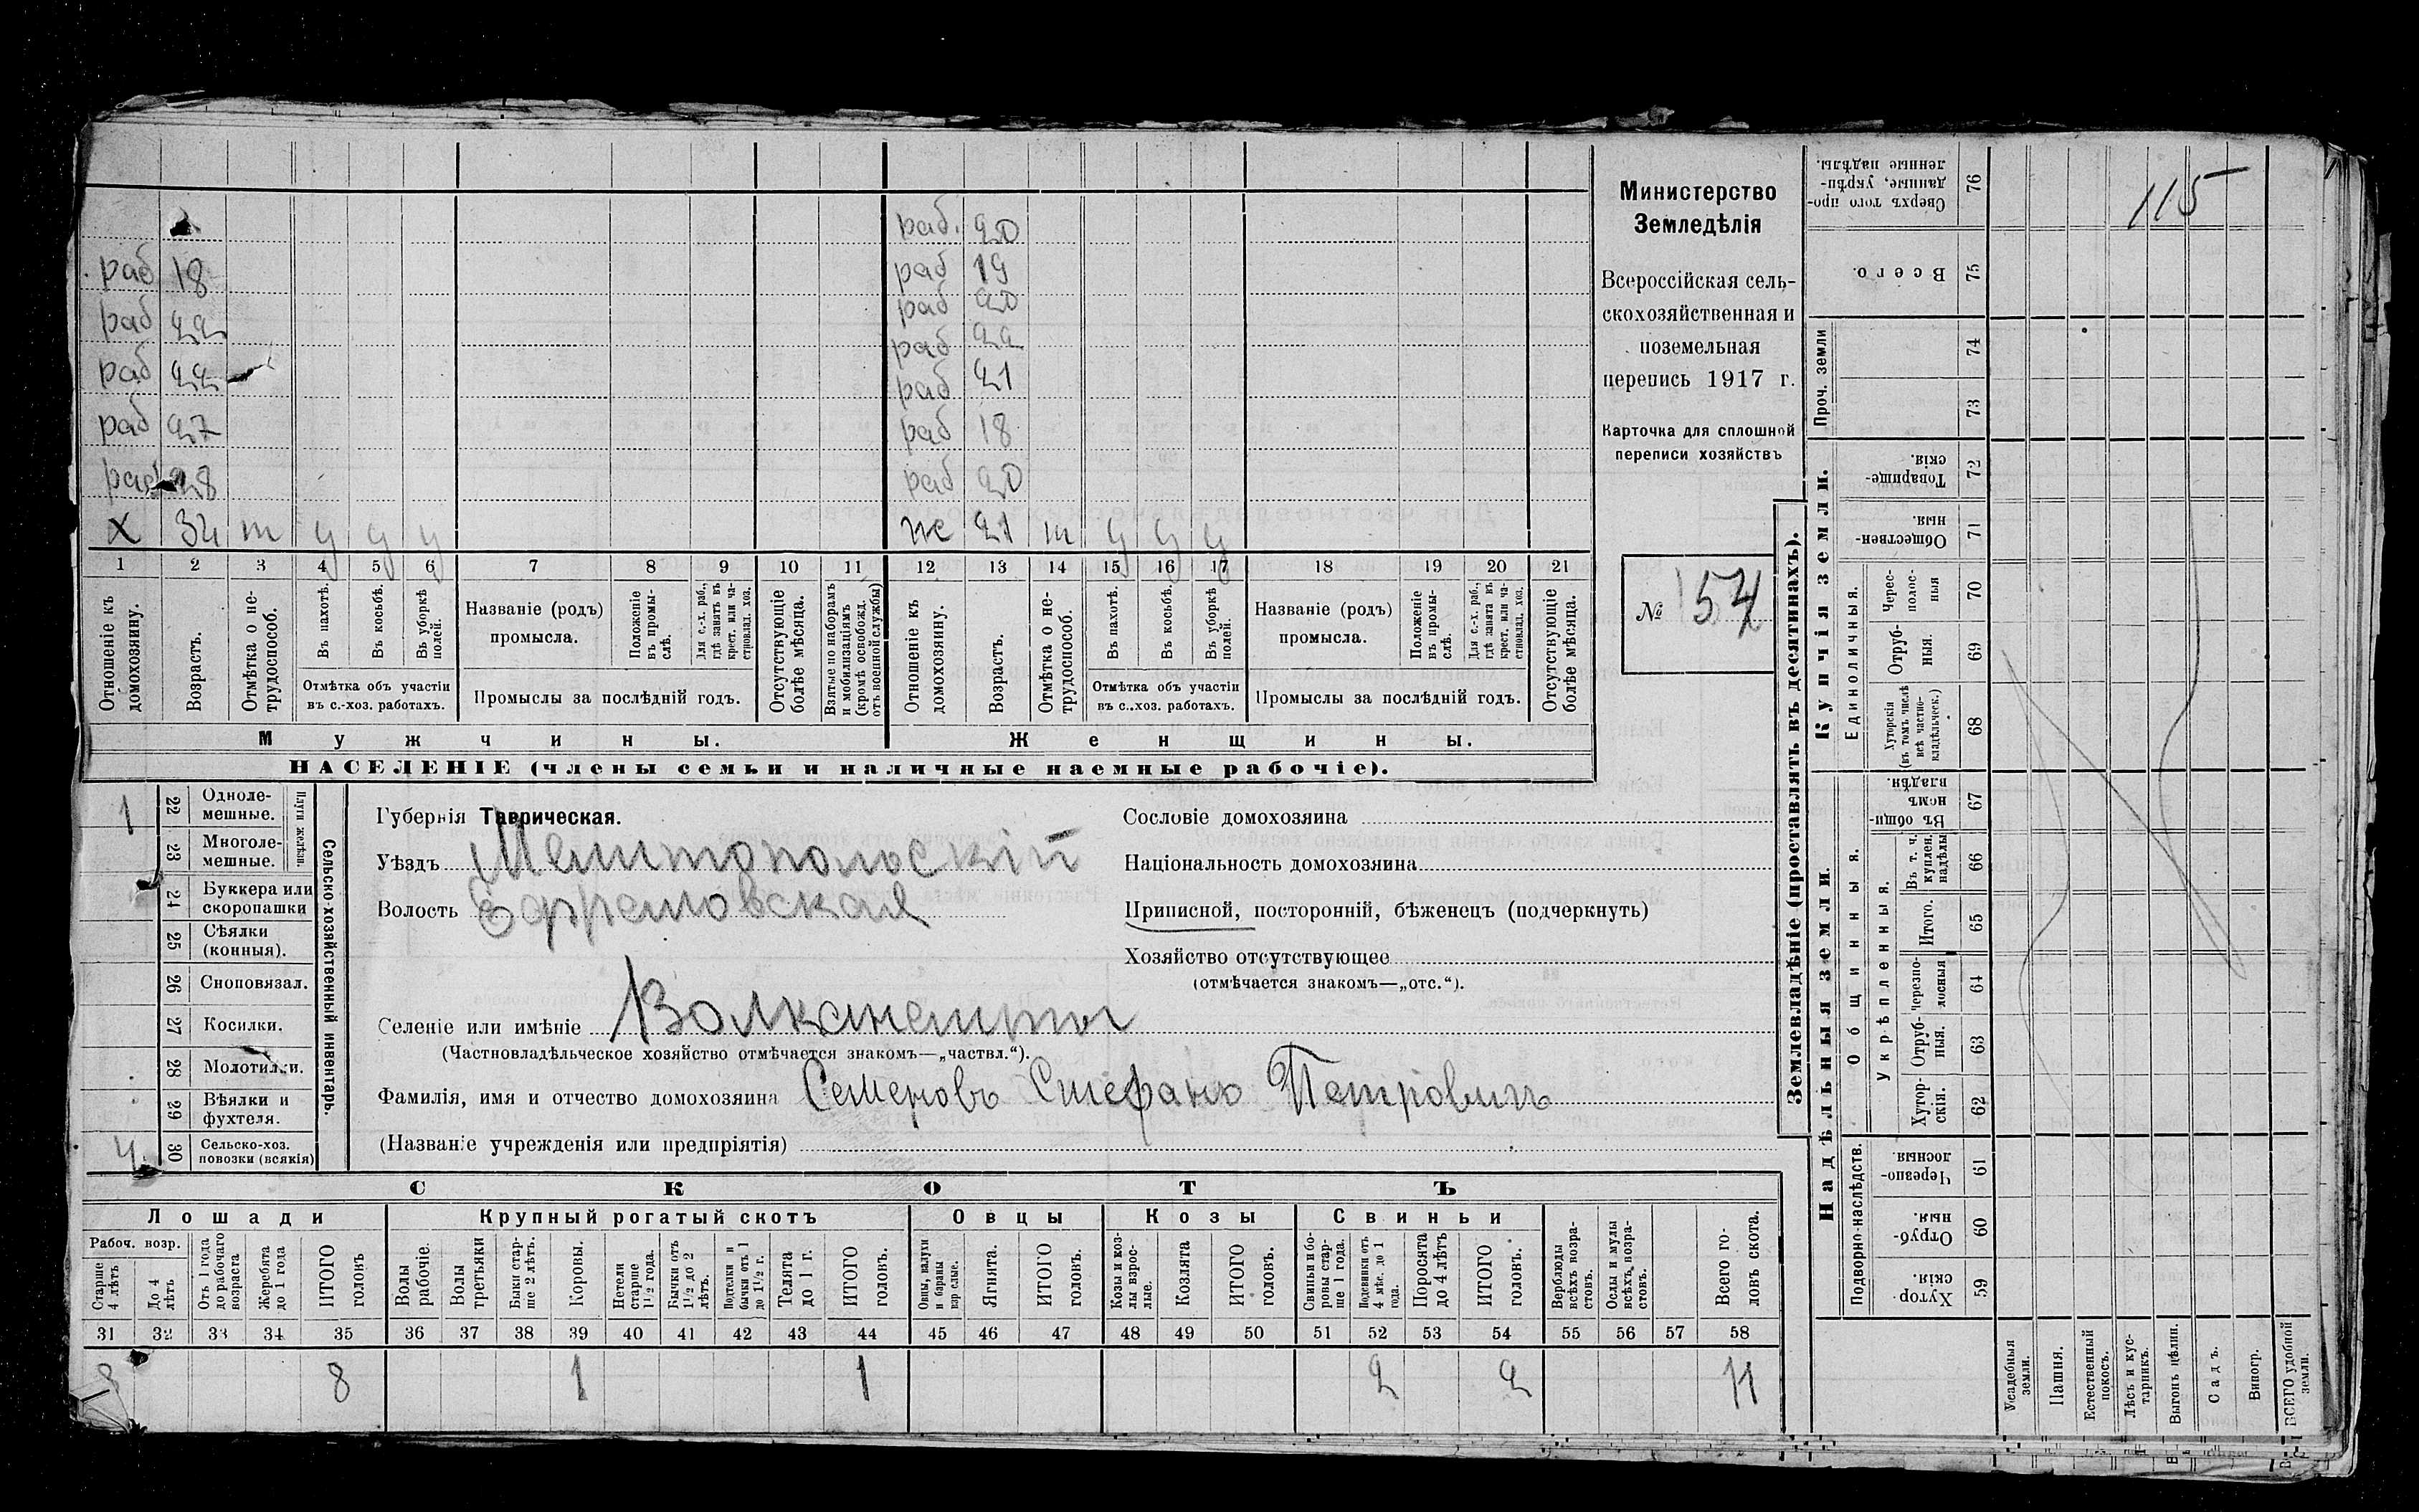 раб. 20
раб 18 раб 19
раб 22 раб 20
раб 22 раб 22
раб 21
раб 27 раб 18
раб 28 раб 20
х 32 т у у у ж 21 т у у у
1 2 3 4 5 6 7 8 9 10 11 12 13 14 15 16 17 18 19 20 21
Отношеніе къ домохозяину.
Возрастъ.
Отмѣтка о не-трудоспособ.
Въ пахотѣ.
Въ косьбѣ.
Въ уборкѣ полей.
Отмѣтка объ участіи
въ с.-хоз. работахъ.
Названіе (родъ)
промысла.
Положеніе въ промы-слѣ.
Для с.-х. раб., гдѣ занятъ въ крест. или ча-стновлад. хоз.
Промыслы за послѣдній годъ.
Отсутствующіе болѣе мѣсяца.
Взятые по наборамъ и мобилизаціямъ (кромѣ освобожд. отъ военной службы)
Отношеніе къ домохозяину.
Возрастъ.
Отмѣтка о не-трудоспособ.
Въ пахотѣ.
Въ косьбѣ.
Въ уборкѣ полей.
Отмѣтка объ участіи
въ с..хоз. работахъ.
Названіе (родъ)
промысла.
Положеніе въ промы-слѣ.
Для с.-х. раб., гдѣ занята въ крест. или ча-стновлад. хоз.
Промыслы за послѣдній годъ.
Отсутствующіе болѣе мѣсяца.
Мужчины. Женщины.
НАСЕЛЕНІЕ (члены семьи и наличные наемные рабочіе).
Министерство
Земледѣлія
Всероссійская сель-
скохозяйственная и
поземельная
перепись 1917 г.
Карточка для сплошной
переписи хозяйствъ
№ 154
Сельско-хозяйственный инвентарь.
Плуги желѣзн.
1 22 Одноле-
мешные.
23 Многоле-
мешные.
24 Буккера или
скоропашки
25 Сѣялки
(конныя).
26 Сноповязал.
27 Косилки.
28 Молотилки.
29 Вѣялки и
фухтеля.
4 30 Сельско-хоз.
повозки (всякія)
Губернія Таврическая.
Уѣздъ Мелитопольскій
Волость Ефремовская
Селеніе или имѣніе Волканешты
(Частновладѣльческое хозяйство отмѣчается знакомъ—„частвл.“).
Фамилія, имя и отчество домохозяина Семеновъ Стефанъ Петровичъ
(Названіе учрежденія или предпріятія)
Сословіе домохозяина
Національность домохозяина
Приписной, посторонній, бѣженецъ (подчеркнуть)
Хозяйство отсутствующее
(отмѣчается знакомъ—„отс.“).
СКОТЪ
Лошади Крупный рогатый скотъ Овцы Козы Свиньи
Рабоч. возр.
Старше 4 лѣтъ
До 4 лѣтъ
Отъ 1 года до рабочаго возраста
Жеребята до 1 года
ИТОГО головъ
Волы рабочіе.
Волы третьяки
Быки стар-ше 2 лѣтъ.
Коровы.
Нетели старше 1½ года.
Бычки отъ 1½ до 2 лѣтъ.
Подтелки и бычки отъ 1 до 1½ г.
Телята до 1 г.
ИТОГО головъ.
Овцы, валухи и бараны взрослые.
Ягнята.
ИТОГО головъ.
Козы и коз-лы взрос-лые.
Козлята
ИТОГО головъ.
Свиньи и бо-ровы стар-ше 1 года.
Подсвинки отъ 4 мѣс. до 1 года.
Поросята до 4 лѣтъ
ИТОГО головъ.
Верблюды всѣхъ возра-стовъ.
Ослы и мулы всѣхъ возра-стовъ.
Всего го-ловъ скота.
31 32 33 34 35 36 37 38 39 40 41 42 43 44 45 46 47 48 49 50 51 52 53 54 55 56 57 58
8 8 1 1 2 2 11
Землевладѣніе (проставлять въ десятинахъ).
Купчія земли.
Сверхъ того про-данные, укрѣп-ленные надѣлы. 76
115
Всего. 75
Проч. земли 74
73
Товарище-скія. 72
Обществен-ныя. 71
Единоличныя.
Черес-полос-ныя 70
Отруб-ныя. 69
Хуторскія (въ томъ числѣ всѣ частно-владѣльческ.) 68
Надѣльныя земли.
Общинныя.
Въ общи-номъ владѣн. 67
Укрѣпленныя.
Въ т. ч. куплен. надѣлы 66
Итого. 65
Черезпо-лосныя 64
Отруб-ныя. 63
Хутор-скія. 62
Подворно-наслѣдств.
Черезпо-лосныя 61
Отруб-ныя. 60
Хутор-скія. 59
Усадебныя земли.
Пашня.
Естественный покосъ.
Лѣсъ и кус-тарникъ.
Выгонъ цѣлин.
Садъ.
Виногр.
ВСЕГО удобной земли.